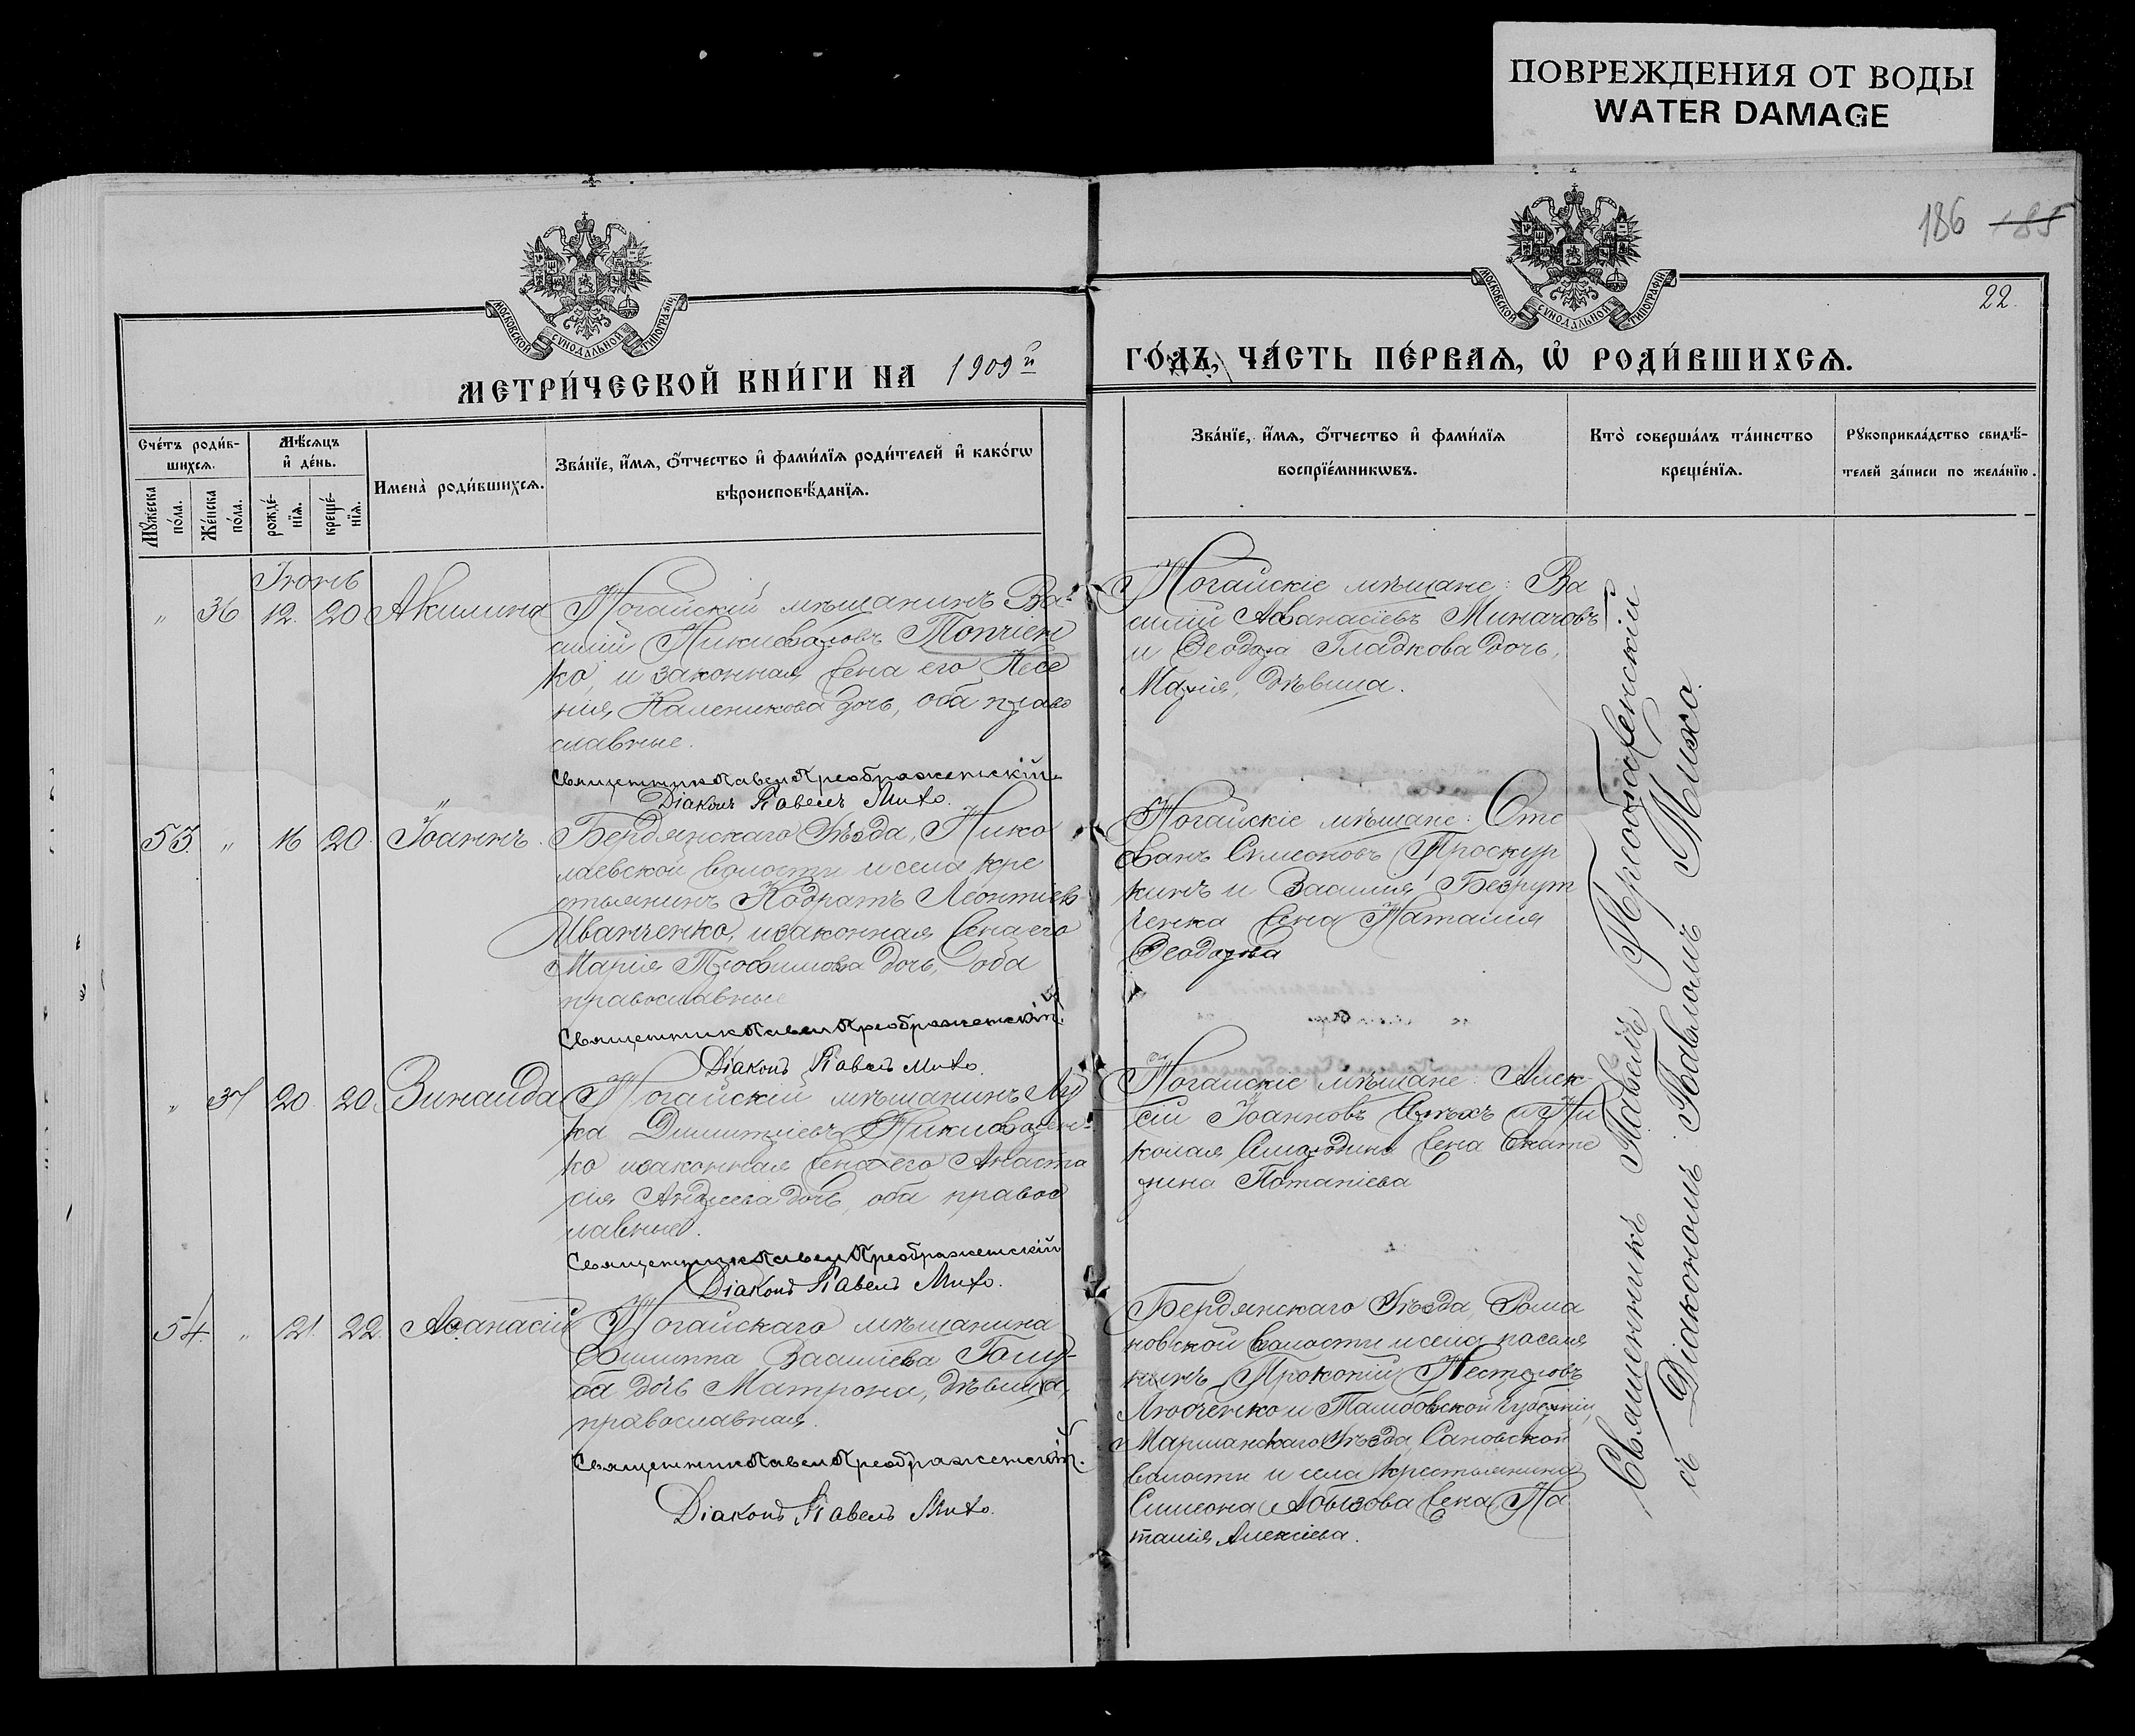 ПОВРЕЖДЕНИЯ ОТ ВОДЫ
WATER DAMAGE
186 185
22.
МОСКОВСКОЙ СѴНОДАЛЬНОЙ ТИПОГРАФІИ
МОСКОВСКОЙ СѴНОДАЛЬНОЙ ТИПОГРАФІИ
МЕТРИ́ЧЕСКОЙ КНИ́ГИ НА 1909й
ГО́ДЪ, ЧА́СТЬ ПЕ́РВАЯ, Ѡ҆ РОДИ́ВШИХСЯ.
Сче́тъ роди́в-
шихся.
Мѣ́сяцъ
и҆ де́нь.
Мꙋжеска
по́ла.
Же́нска
по́ла.
рожде́-
нїя.
креще́-
нїя.
Имена̀ роди́вшихся.
Зва́нїе, и҆́мя, ѻ҆́тчество и҆ фами́лїя роди́телей и҆ како́гѡ
вѣроисповѣ́данїя.
Зва́нїе, и҆́мя, ѻ҆́тчество и҆ фами́лїя
воспрїе́мникѡвъ.
Кто̀ соверша́лъ та́инство
креще́нїя.
Рꙋкоприкла́дство свидѣ́-
телей за́писи по жела́нїю.
Іюнь
„ 36 12. 20 Акилина
Ногайскій мѣщанинъ Ва-
силій Никифоровъ Топчіен
ко, и законная жена его Ксе
нія Каленикова дочь, оба право
славные.
Священникъ Павелъ Преображенскій
Діаконъ Павелъ Михо.
Ногайскіе мѣщане: Ва
силій Аѳанасіевъ Миначовъ
и Ѳеодора Гладкова дочь,
Марія, дѣвица.
53. „ 16 20. Іоаннъ.
Бердянскаго Уѣзда, Нико
лаевской волости и села кре
стьянинъ Кодратъ Леонтіев
Иванченко, и законная жена его
Марія Трофимова дочь, оба
православные
Священникъ Павелъ Преображенскій.
Діаконъ Павелъ Михо.
Ногайскіе мѣщане: Сте
фанъ Симеоновъ Проскур
кинъ и Василія Безрут
ченка жена Наталія
Ѳеодорова
„ 37 20. 20. Зинаида
Ногайскій мѣщанинъ Лу
ка Димитріевъ Никифорен-
ко и законная жена его Анаста
сія Андреева дочь, оба правос
лавные.
Священникъ Павелъ Преображенскій
Діаконъ Павелъ Михо.
Ногайскіе мѣщане: Алек-
сій Іоанновъ и Ни
колая жена Екате
рина Потапіева
54. „ 21. 22. Аѳанасій
Ногайскаго мѣщанина
Филиппа Василіева Голу-
ба дочь Матрона, дѣвица,
православная.
Священникъ Павелъ Преображенскій.
Діаконъ Павелъ Михо.
Бердянскаго Уѣзда, Рома
новской волости и села поселя
нинъ Прокопій Несторовъ
Любченко и Тамбовской губерніи,
Маршанскаго Уѣзда, Сановской
волости и села крестьянина
Симеона Абызова жена На
талія Алексіева.
Священникъ Павелъ Преображенскій
съ Діакономъ Павломъ Михо.